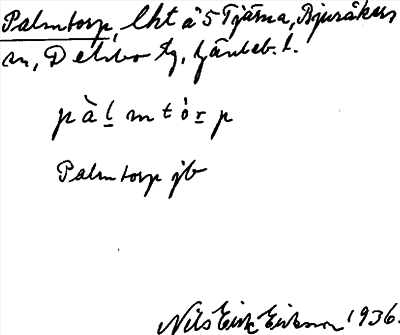 Palmtorp, lht å 5 Tjärna, Bjuråkers
sn, Delsbo tg, Gävleb. l.
pàl̠mtór̠p
Palmtorp jb
Nils Eirik Eriksson 1936.